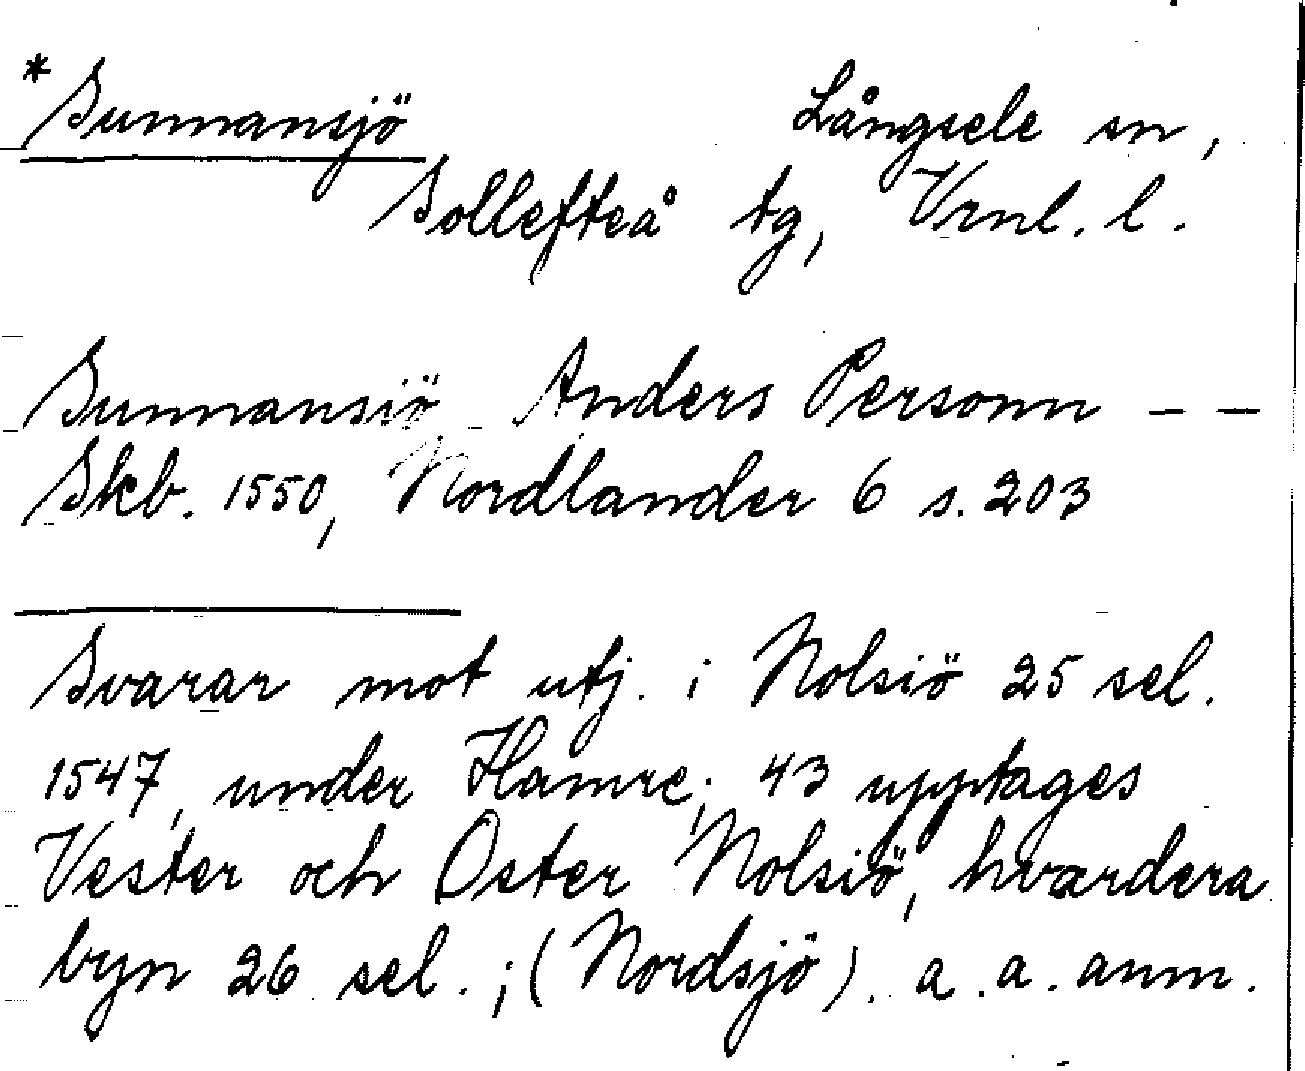 *Sunnansjö Långsele sn,
Sollefteå tg, Vrnl. l.
Sunnansiö Anders Personn – –
Skb. 1550, Nordlander 6 s. 203
Svarar mot utj. i Nolsiö 25 sel.
1547, under Hamre; 43 upptages
Vester och Öster Nolsiö, hvardera
byn 26 sel.; (Nordsjö). a.a. anm.